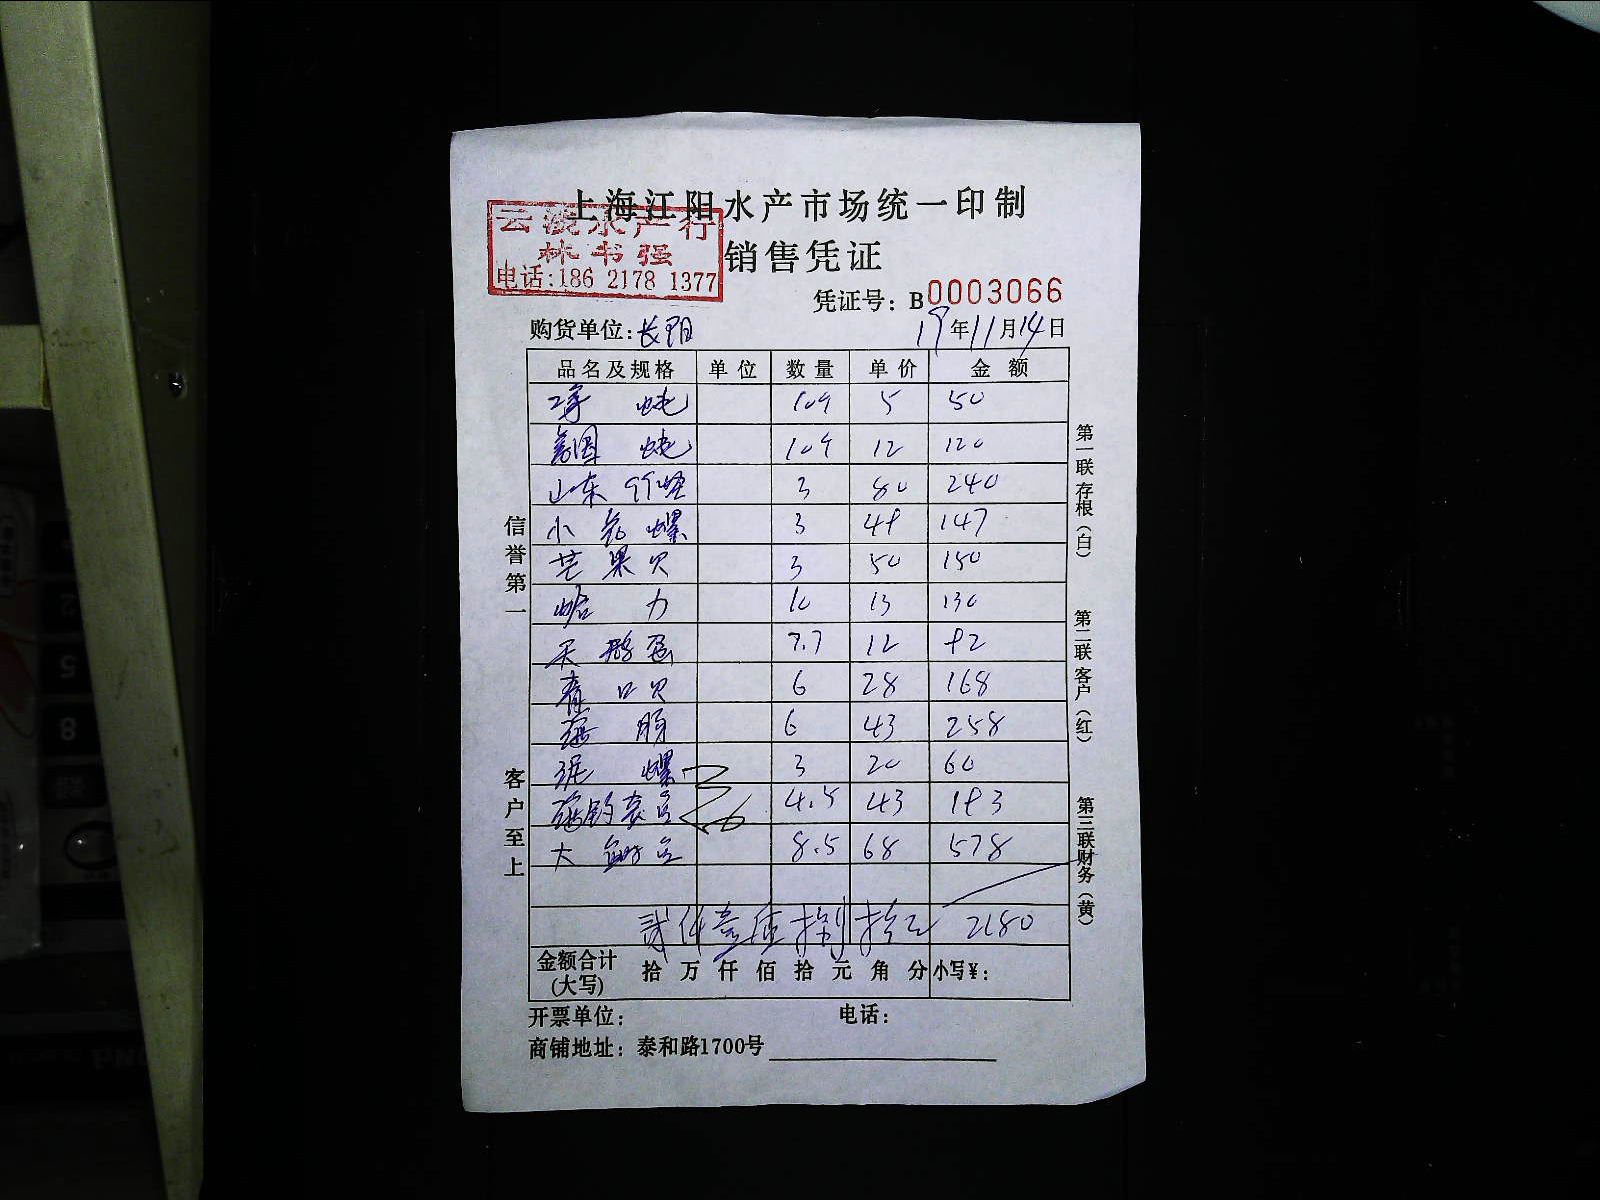 上海江阳水产市场统一印制
云波水产行
林书强
电话:186 2178 1377
销售凭证
凭证号: B0003066
购货单位: 长阳 19年11月14日
品名及规格 单位 数量 单价 金额
5 50
美国 12 120
山东竹蛏 3 80 240
小花螺 3 49 147
芒果贝 3 50 150
蛤力 10 13 130
天鹅蛋 7.7 12 92
青口贝 6 28 168
海肠 6 43 258
泥螺 3 20 60
4.5 43 193
大 8.5 68 578
贰仟壹佰捌拾元 2180
金额合计(大写) 拾 万 仟 佰 拾 元 角 分 小写¥:
开票单位: 电话:
商铺地址: 泰和路1700号
信誉第一
客户至上
第一联 存根(白)
第二联 客户(红)
第三联 财务(黄)